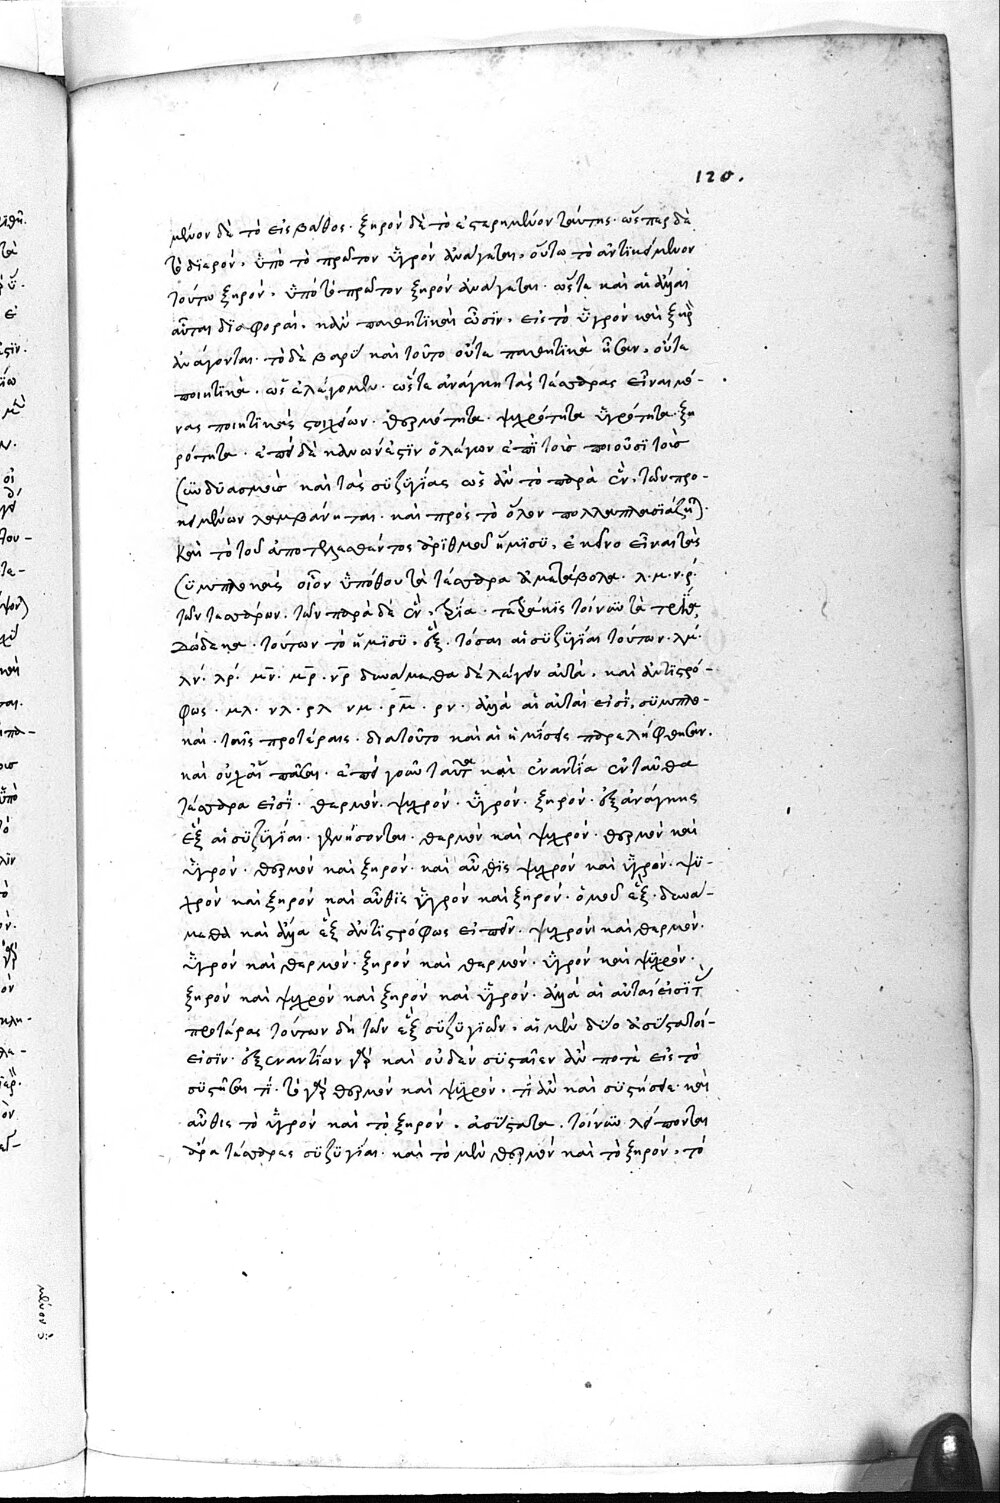 120.
μένον δὲ τὸ εἰς βάθος· ξηρὸν δὲ τὸ ἐστερημένον ταύτης· ὥσπερ δὲ
τὸ διερὸν, ὑπὸ τὸ πρῶτον ὑγρὸν ἀνάγεται, οὕτω τὸ ἀντικείμενον
τούτω ξηρὸν, ὑπὸ τὸ πρῶτον ξηρὸν ἀνάγεται· ὥστε καὶ αἱ ἄλλαι
αὗται διαφοραὶ, κἂν παθητικαὶ ὦσιν, εἰς τὸ ὑγρὸν καὶ ξηρὸν
ἀνάγονται· τὸ δὲ βαρὺ καὶ τοῦτο οὔτε παθητικὰ ἦσαν, οὔτε
ποιητικὰ· ὡς ἐλέγομεν· ὥστε ἀνάγκη τὰς τέσσαρας εἶναι μό-
νας ποιητικὰς στοιχείων· θερμότητα· ψυχρότητα ὑγρότητα· ξη
ρότητα· ἐπεὶ δὲ κανών ἐστιν ὁ λέγων ἐπὶ τοῖς ποιοῦσι τοὺς
συνδυασμοὺς καὶ τὰς συζυγίας ὡς ἂν τὸ παρὰ ἓν, τῶν προ-
κειμένων λαμβάνηται· καὶ πρὸς τὸ ὅλον πολλαπλασιάζηται·
καὶ τὸ τοῦ ἀποτελεσθέντος ἀριθμοῦ ἥμισυ, ἐκεῖνο εἶναι τὰς
συμπλοκάς οἷον ὑπόθου τὰ τέσσαρα ἀμετάβολα· λ· μ· ν· ρ·
τῶν τεσσάρων· τῶν παρὰ δὲ ἓν, τρία· τετράκις τοίνυν τὰ τρία,
δώδεκα· τούτων τὸ ἥμισυ, ἓξ· τόσαι αἱ συζυγίαι τούτων· λμ·
λν· λρ· μν· μρ· νρ δυνάμεθα δὲ λέγειν αὐτὰ, καὶ ἀντιστρό-
φως· μλ· νλ· ρλ νμ· ρμ· ρν· ἀλλὰ αἱ αὐταὶ εἰσὶ, συμπλο-
καὶ· ταῖς προτέραις· διατοῦτο καὶ αἱ ἡμίσειαι παρελήφθησαν·
καὶ οὐχ αἱ πᾶσαι· ἐπεὶ γοῦν ταῦτα καὶ ἐναντία ἐνταῦθα
τέσσαρα εἰσὶ· θερμὸν· ψυχρὸν· ὑγρὸν· ξηρὸν· ἐξ ἀνάγκης
ἓξ αἱ συζυγίαι· γενήσονται· θερμὸν καὶ ψυχρὸν· θερμὸν καὶ
ὑγρὸν· θερμὸν καὶ ξηρὸν· καὶ αὖθις ψυχρὸν καὶ ὑγρὸν· ψυ-
χρὸν καὶ ξηρὸν καὶ αὖθις ὑγρὸν καὶ ξηρὸν· ὁμοῦ ἓξ· δυνά-
μεθα καὶ ἄλλα ἓξ ἀντιστρόφως εἰπεῖν· ψυχρὸν καὶ θερμὸν·
ὑγρὸν καὶ θερμὸν· ξηρὸν καὶ θερμὸν· ὑγρὸν καὶ ψυχρὸν·
ξηρὸν καὶ ψυχρὸν καὶ ξηρὸν καὶ ὑγρὸν· ἀλλὰ αἱ αὐταί εἰσι τῆς
προτέρας τούτων δὴ τῶν ἓξ συζυγιῶν, αἱ μὲν δύο ἀσύστατοί-
εἰσιν· ἐξ ἐναντίων γὰρ καὶ οὐδὲν συσταῖεν ἄν ποτε εἰς τὸ
συστῆσαι τί· τὸ γὰρ θερμὸν καὶ ψυχρὸν, τί ἂν καὶ συστήσειε· καὶ
αὖθις τὸ ὑγρὸν καὶ τὸ ξηρὸν, ἀσύστατα, τοίνυν λείπονται
ἄρα τέσσαρες συζυγίαι· καὶ τὸ μὲν θερμὸν καὶ τὸ ξηρὸν, τὸ